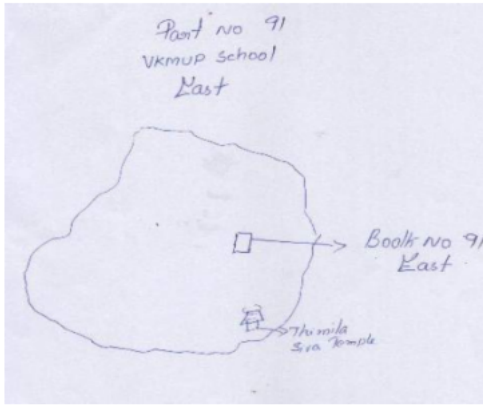 Part No 91
VKMUP School
East
Boolk No 91
East
Thimila
Siva Temple